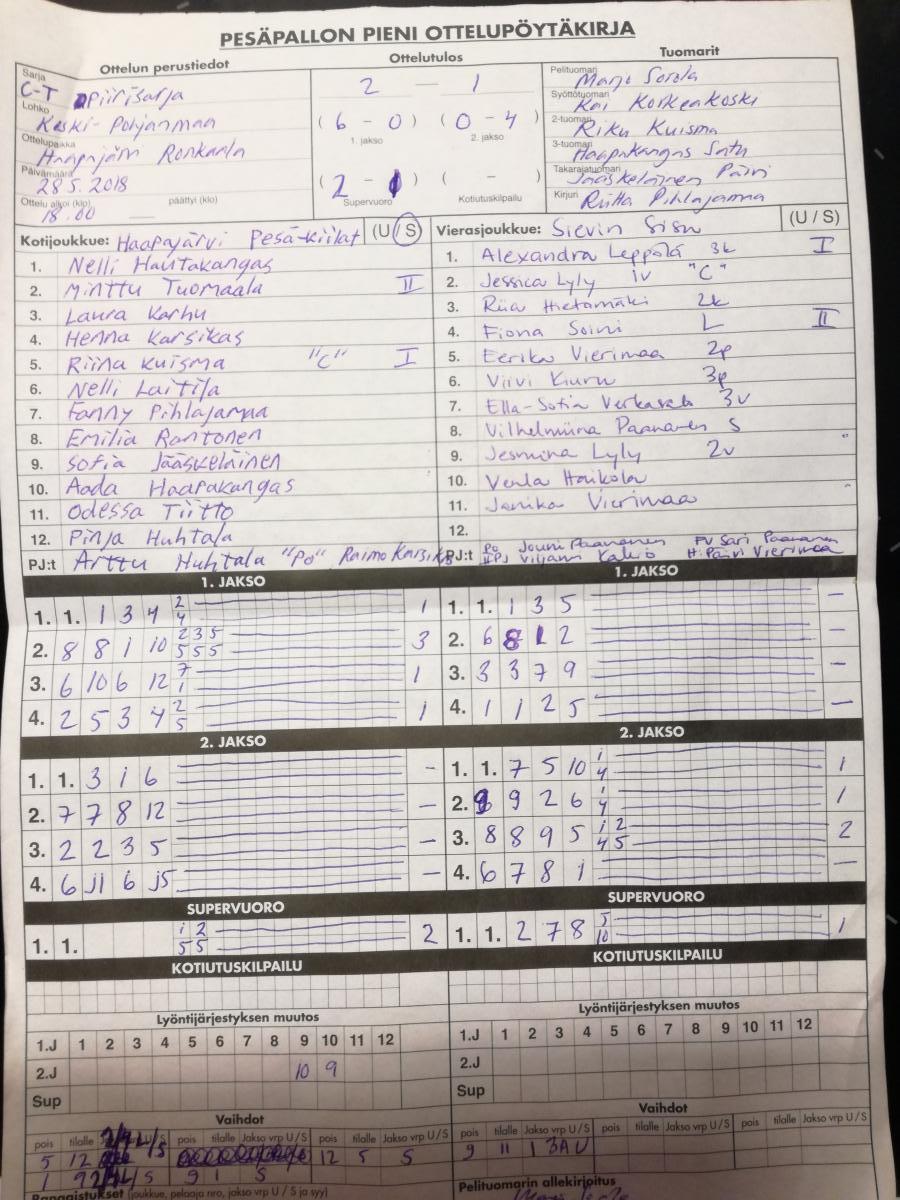 PESÄPALLON PIENI OTTELUPÖYTÄKIRJA
Ottelun perustiedot Ottelutulos Tuomarit
Sarja C-T piirisarja
Lohko Keski-Pohjanmaa
Ottelupaikka Haapajärvi Ronkaala
Päivämäärä 28.5.2018
Ottelu alkoi (klo) 18.00 päättyi (klo)
2 – 1
( 6 – 0 ) ( 0 – 4 )
1. jakso 2. jakso
( 2 – 1 ) ( – )
Supervuoro Kotiutuskilpailu
Pelituomari Marjo Sorola
Syöttötuomari Kai Korkeakoski
2-tuomari Riku Kuisma
3-tuomari Haapakangas Satu
Takarajatuomari Jääskeläinen Päivi
Kirjuri Riitta Pihlajamaa
Kotijoukkue: Haapajärvi Pesä-Kiilat (U/S)
1. Nelli Hautakangas
2. Minttu Tuomaala II
3. Laura Karhu
4. Henna Karsikas
5. Riina Kuisma "C" I
6. Nelli Laitila
7. Fanny Pihlajamaa
8. Emilia Rantonen
9. Sofia Jääskeläinen
10. Aada Haapakangas
11. Odessa Tiitto
12. Pinja Huhtala
PJ:t Arttu Huhtala "PO" Raimo Karsikas
Vierasjoukkue: Sievin Sisu (U/S)
1. Alexandra Leppälä 3k I
2. Jessica Lyly 1v "C"
3. Riia Hietamäki 2k
4. Fiona Soini L II
5. Eerika Vierimaa 2p
6. Viivi Kiuru 3p
7. Ella-Sofia Verkasalo 3v
8. Vilhelmiina Paananen S
9. Jesmina Lyly 2v
10. Venla Haikola
11. Janika Vierimaa
12.
PJ:t PO Jouni Paananen PV Sari Paananen
Viljami Kallio H. Päivi Vierimaa
1. JAKSO
1. 1. 1 3 4 2 4 1
2. 8 8 1 10 2 3 5 5 5 5 3
3. 6 10 6 12 7 1 1
4. 2 5 3 4 2 5 1
1. JAKSO
1. 1. 1 3 5 –
2. 6 8 1 2 –
3. 3 3 7 9 –
4. 1 1 2 5 –
2. JAKSO
1. 1. 3 1 6 –
2. 7 7 8 12 –
3. 2 2 3 5 –
4. 6 J1 6 J5 –
2. JAKSO
1. 1. 7 5 10 1 4 1
2. 9 9 2 6 1 4 1
3. 8 8 9 5 1 2 4 5 2
4. 6 7 8 1 –
SUPERVUORO
1. 1. 1 2 5 5 2
SUPERVUORO
1. 1. 2 7 8 5 10 1
KOTIUTUSKILPAILU
KOTIUTUSKILPAILU
Lyöntijärjestyksen muutos
1.J 1 2 3 4 5 6 7 8 9 10 11 12
2.J 10 9
Sup
Lyöntijärjestyksen muutos
1.J 1 2 3 4 5 6 7 8 9 10 11 12
2.J
Sup
Vaihdot
pois tilalle Jakso vrp U/S pois tilalle Jakso vrp U/S pois tilalle Jakso vrp U/S
5 12 12 5 S
1 9 S 9 1 S
Vaihdot
pois tilalle Jakso vrp U/S pois tilalle Jakso vrp U/S pois tilalle Jakso vrp U/S
9 11 1 3A U
Rangaistukset (joukkue, pelaaja nro, jakso vrp U/S ja syy)
Pelituomarin allekirjoitus